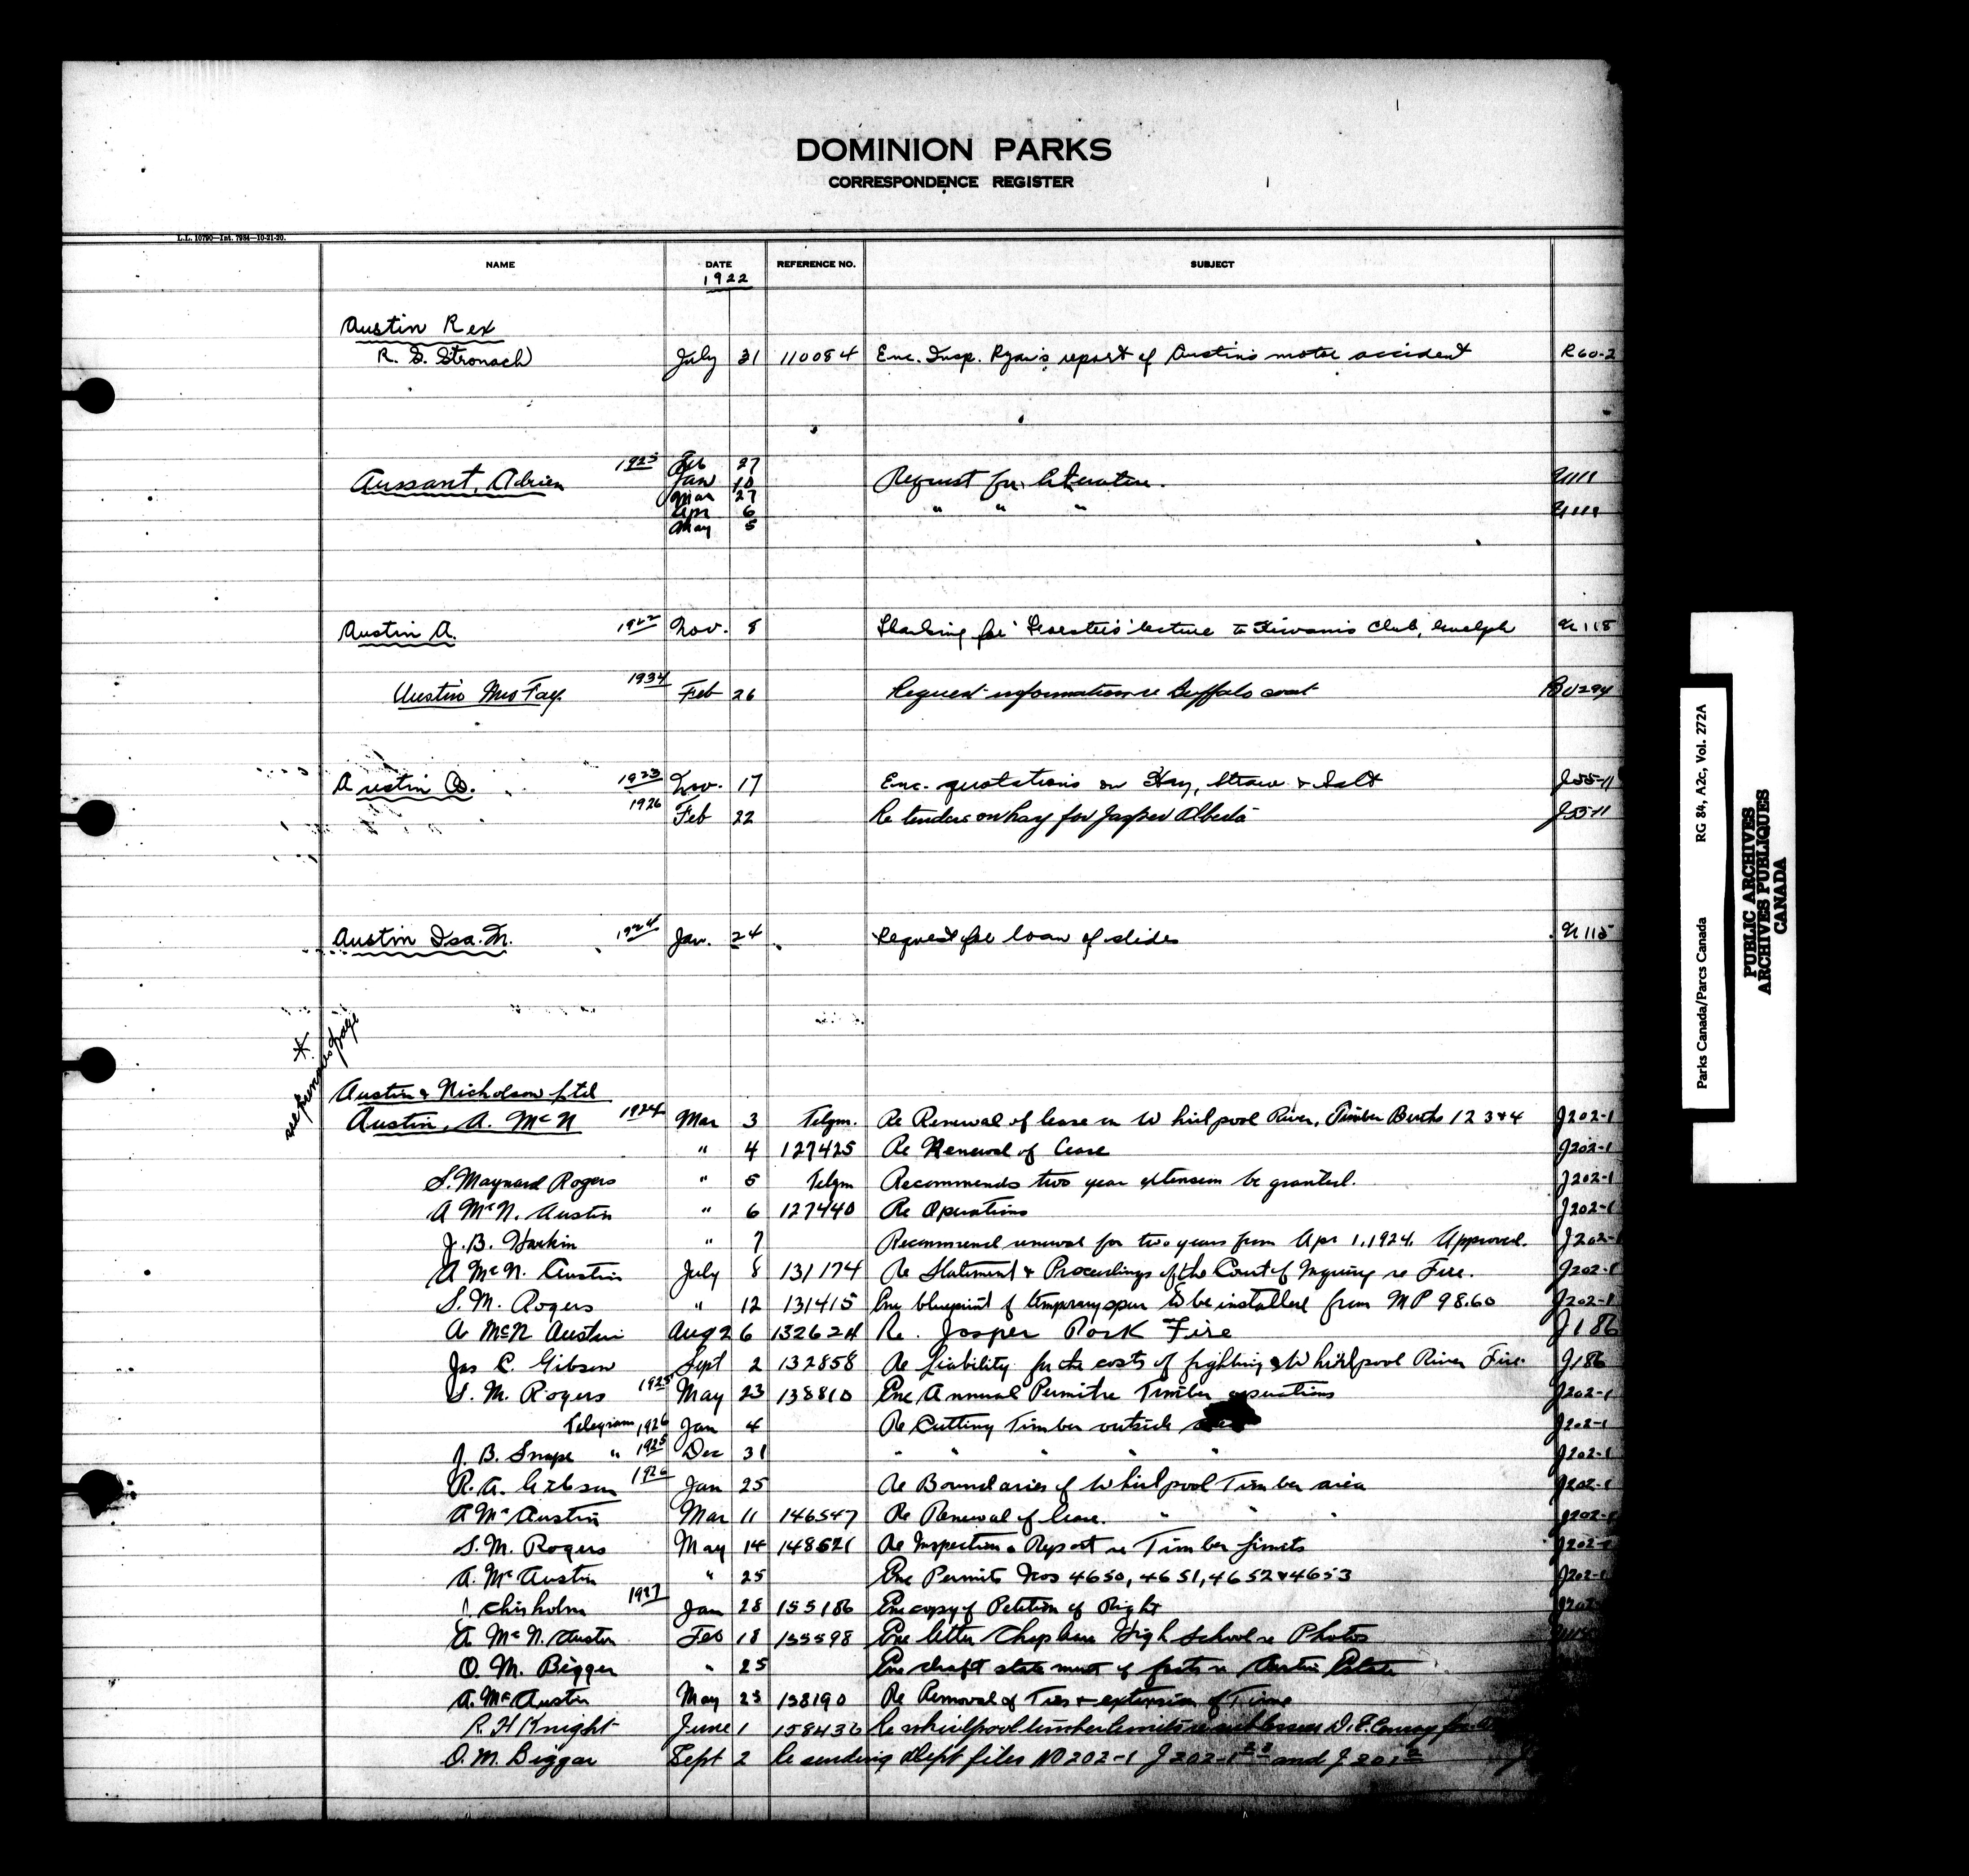 DOMINION PARKS
CORRESPONDENCE REGISTER
L.L. 10790—Int. 7984—10-21-20.
NAME DATE REFERENCE NO. SUBJECT
1922
Austin Rex
R. S. Stronach July 31 110084 Enc. Insp. Ryan's report of Austin's motor accident R60-2
1925 Feb 27
Aussant, Adrien Jan 10 Request for literature.
Mar 27
Apr 6 " " "
May 5
Austin A. 1922 Nov. 8 Thanking for lecture to Kiwanis Club, Guelph
Austin Mrs Fay 1934 Feb 26 Request information re Buffalo coat BU294
Austin Co. 1923 Nov. 17 Enc. quotations on Hay, Straw & Salt J55-11
1926 Feb 22 Re tenders on hay for Jasper Alberta J55-11
Austin Isa. M. 1924 Jan. 24 Request for loan of slides
* see previous page
Austin & Nicholson Ltd
Austin, A. McN 1924 Mar 3 Telgm. Re Renewal of lease on Whirlpool River, Timber Berths 1 2 3 & 4 J202-1
" 4 127425 Re Renewal of Lease J202-1
S. Maynard Rogers " 5 Telgm Recommends two year extension be granted. J202-1
A McN. Austin " 6 127440 Re Operations J202-1
J. B. Harkin " 7 Recommend renewal for two years from Apr 1, 1924. Approved. J202-1
A McN. Austin July 8 131174 Re Statement & Proceedings of the Court of Inquiry re Fire. J202-1
S. M. Rogers " 12 131415 Enc blueprint of temporary spur to be installed from MP 98.60 J202-1
A McN Austin Aug 26 132624 Re. Jasper Park Fire J186
Jas C. Gibson Sept 2 132858 Re liability for the costs of fighting Whirlpool River Fire. J186
S. M. Rogers 1925 May 23 138810 Enc Annual Permit re Timber operations J202-1
Telegram 1926 Jan 4 Re Cutting Timber outside J202-1
J. B. Snape " 1925 Dec 31 " " " " " J202-1
R. A. Gibson 1926 Jan 25 Re Boundaries of Whirlpool Timber area J202-1
A Mc Austin Mar 11 146547 Re Renewal of lease. " " " J202-1
S. M. Rogers May 14 148521 Re Inspection & Report re Timber limits J202-1
A. Mc Austin " 25 Enc Permits Nos 4650, 4651, 4652 & 4653 J202-1
Chisholm 1927 Jan 28 155186 Enc copy of Petition of Right J202-
A McN. Austin Feb 18 155598 Enc letter Chapleau High School re Photos
O. M. Biggar " 25 Enc draft statement of facts re Austin
A. Mc Austin May 23 158190 Re Removal of Ties & extension of Time
R. H Knight June 1 158436 Re whirlpool timber limits
O. M. Biggar Sept 2 Re sending Dept files 202-1 J 202-1 and J
Parks Canada/Parcs Canada RG 84, A2c, Vol. 272A
PUBLIC ARCHIVES
ARCHIVES PUBLIQUES
CANADA